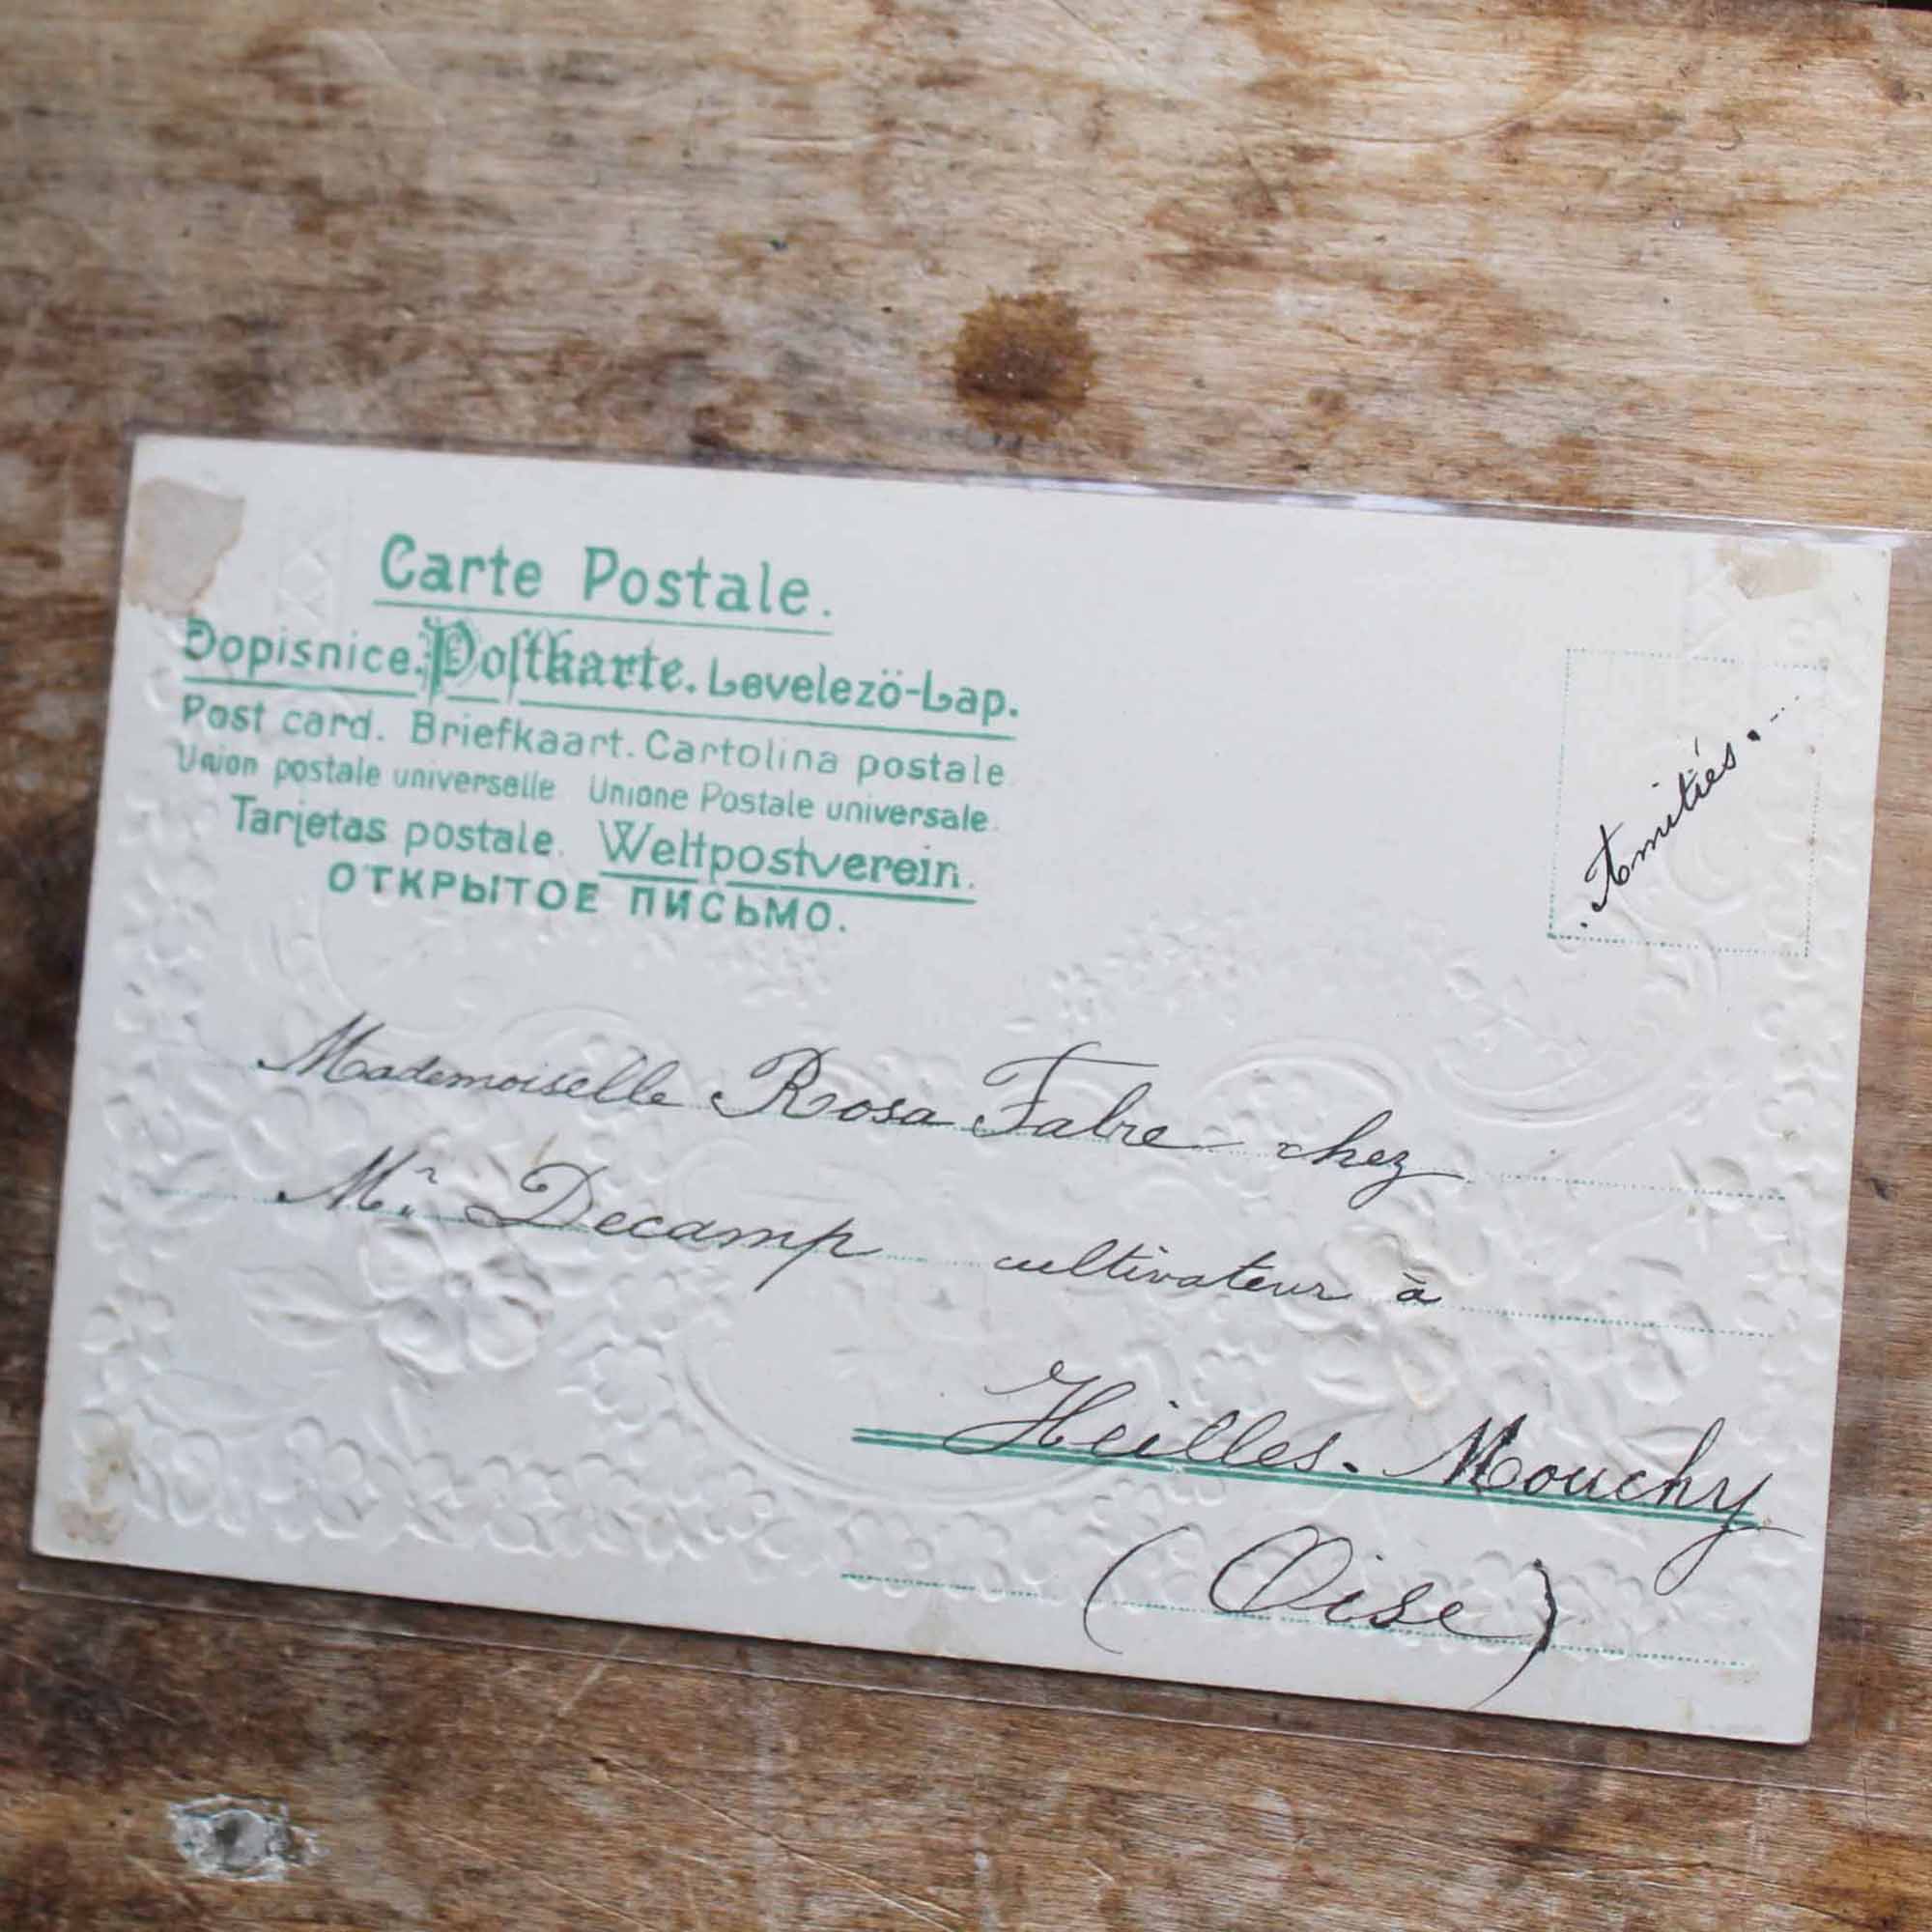 Carte Postale.
Dopisnice. Postkarte. Levelezö-Lap.
Post card. Briefkaart. Cartolina postale
Union postale universelle Unione Postale universale.
Tarjetas postale. Weltpostverein.
ОТКРЫТОЕ ПИСЬМО.
Amitiés...
Mademoiselle Rosa Fabre chez
Mr. Decamp cultivateur à
Heilles. Mouchy
(Oise)